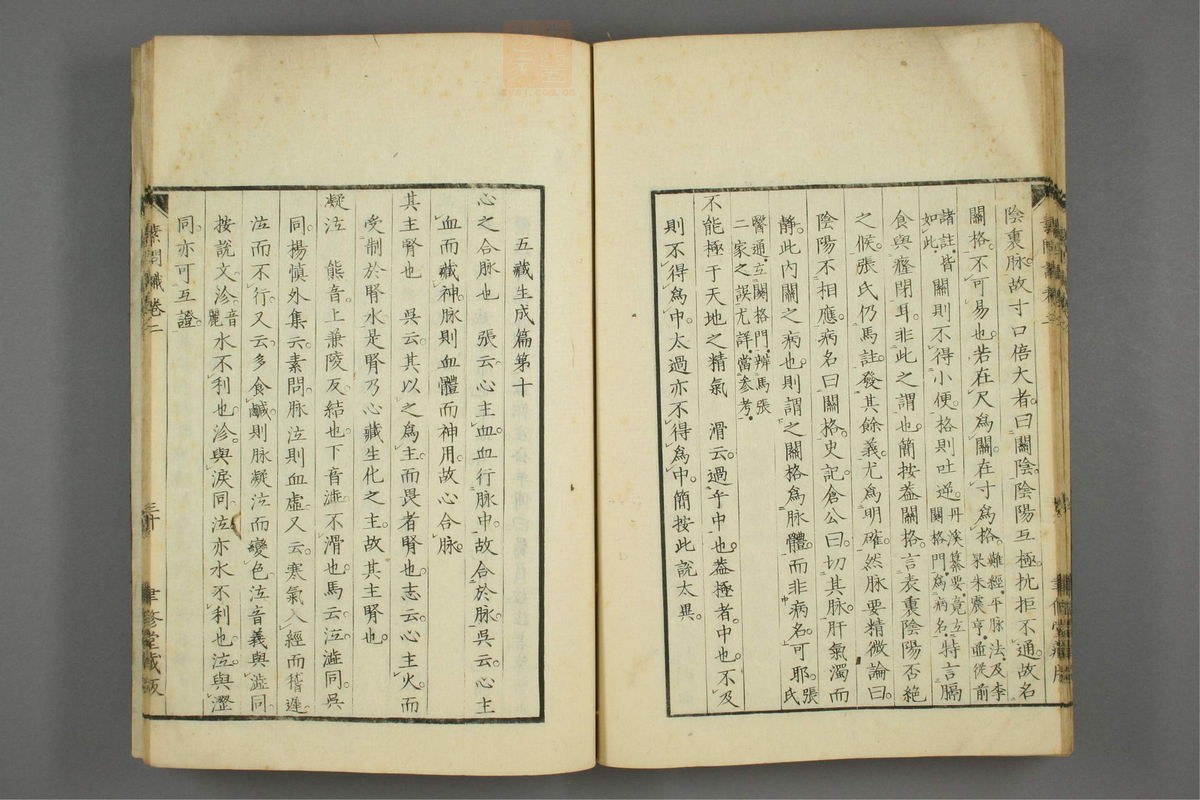 陰裏脉。故寸口倍大者。曰關陰。陰陽互極。抗拒不通。故名
關格。不可易也。若在尺爲關。在寸爲格。難經。平脉法。及李杲朱震亨。亟從前
諸註。皆關則不得小便。格則吐逆。丹溪纂要。竟立關格門。爲病名。特言膈
如此。
食與癃閉耳。非此之謂也。簡按蓋關格。言表裏陰陽否絶
之候。張氏仍馬註。發其餘義。尤爲明確。然脉要精微論曰
陰陽不相應。病名曰關格。史記倉公曰。切其脉。肝氣濁而
靜。此內關之病也。則謂之關格爲脉體。而非病名。可耶。張氏
醫通。立關格門。辨馬張
二家之誤。尤詳。當參考。
不能極于天地之精氣 滑云。過乎中也。蓋極者。中也。不及
則不得爲中。太過亦不得爲中。簡按此説太異。
五藏生成篇第十
心之合脉也 張云。心主血。血行脉中。故合於脉。吳云。心主
血而藏神。脉則血體而神用。故心合脉。
其主腎也 吳云。其以之爲主。而畏者腎也。志云。心主火。而
受制於腎水。是腎乃心藏生化之主。故其主腎也。
凝泣 熊音。上兼陵反。結也。下音澁。不滑也。馬云。泣澁同。吳
同。楊慎外集云。素問脉泣則血虛。又云。寒氣入經而稽遲。
泣而不行。又云。多食鹹。則脉凝泣而變色。泣音義與澁同。
按說文。沴音麗水不利也。沴與淚同。泣亦水不利也。泣與澀
同。亦可互證。
素問識卷二
三十
聿修堂藏版